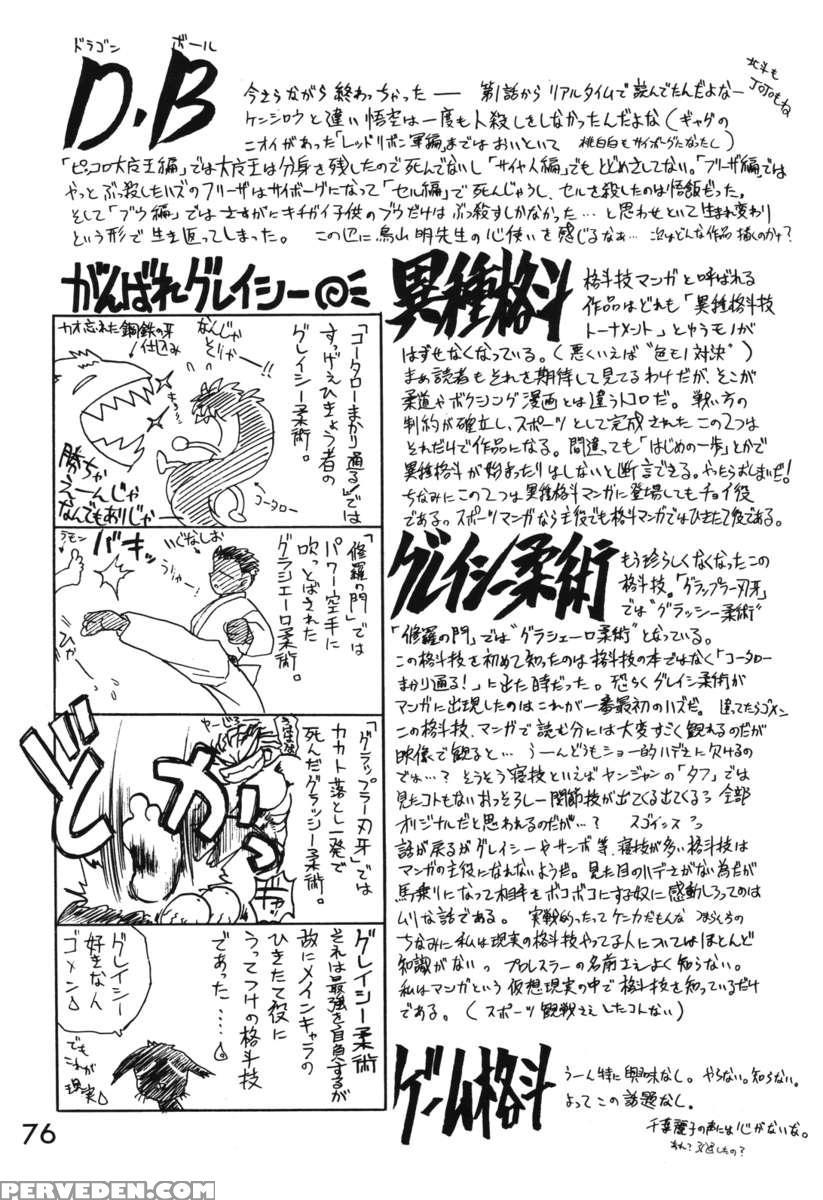 ドラゴン ボール
D.B
今さらながら終わっちゃった── 第1話からリアルタイムで読んでたんだよなー
北斗も
JOJOもね
ケンシロウと違い悟空は一度も人殺しをしなかったんだよな(ギャグの
ニオイがあった「レッドリボン軍編」まではおいといて 桃白白もサイボーグになったし)
「ピッコロ大魔王編」では大魔王は分身を残したので死んでないし「サイヤ人編」でもとどめさしてない。「フリーザ編」では
やっとぶっ殺したハズのフリーザはサイボーグになって「セル編」で死んじゃうし、セルを殺したのは悟飯だった。
そして「ブウ編」ではさすがにキチガイ子供のブウだけはぶっ殺すしかなかった…と思わせといて生まれ変わり
という形で生き返ってしまった。 この辺に鳥山明先生の心使いを感じるなぁ… 次はどんな作品描くのかナ?
がんばれグレイシー
カオ忘れた鋼鉄の牙
仕込み
なんじゃ
そりゃー
「コータローまかり通る」では
すっげえひきょう者の
グレイシー柔術。
コータロー
勝ちゃ
えーんじゃ
なんでもありじゃー
ラモン
バキッ
いぐなしお
うりゃー!
「修羅の門」では
パワー空手に
吹っとばされた
グラシエーロ柔術。
ドカっ
「グラップラー刃牙」では
カカト落とし一発で
死んだグラッシー柔術。
グレイシー柔術
それは最強を自負するが
故にメインキャラの
ひきたて役に
うってつけの格斗技
であった……
グレイシー
好きな人
ゴメン
でも
これが
現実
異種格斗
格斗技マンガと呼ばれる
作品はどれも「異種格斗技
トーナメント」とゆうモノが
はずせなくなっている。(悪くいえば“色モノ対決”)
まぁ読者もそれを期待して見てるわけだが、そこが
柔道やボクシング漫画とは違うトコロだ。 戦い方の
制約が確立し、スポーツとして完成されたこの2つは
それだけで作品になる。間違っても「はじめの一歩」とかで
異種格斗が始まったりはしないと断言できる。やったらおしまいだ!
ちなみにこの2つは異種格斗マンガに登場してもチョイ役
である。スポーツマンガなら主役でも格斗マンガではひきたて役である。
グレイシー柔術
もう珍らしくなくなったこの
格斗技。「グラップラー刃牙」
では“グラッシー柔術”
「修羅の門」では“グラシエーロ柔術”となっている。
この格斗技を初めて知ったのは格斗技の本ではなく「コータロー
まかり通る!」に出た時だった。恐らくグレイシ柔術が
マンガに出現したのはこれが一番最初のハズだ。 違ってたらゴメン
この格斗技、マンガで読む分には大変すごく観れるのだが
映像で観ると… うーんどうもショー的ハデさに欠けるの
でわ…? そうそう寝技といえばヤンジャンの「タフ」では
見たコトもないおっそろしー関節技が出てくる出てくるっ 全部
オリジナルだと思われるのだが…? スゴインスっ
話が戻るがグレイシーやサンボ等、寝技が多い格斗技は
マンガの主役になれないようだ。見た目のハデさがない為だが
馬乗りになって相手をボコボコにする奴に感動しろってのは
ムリな話である。
ちなみに私は現実の格斗技やってる人についてはほとんど
知識がない。 プロレスラーの名前さえよく知らない。
私はマンガという仮想現実の中で格斗技を知っているだけ
である。(スポーツ観戦さえしたコトない)
ゲーム格斗
うーん特に興味なし。やらない。知らない。
よってこの話題なし。
76
PERVEDEN.COM